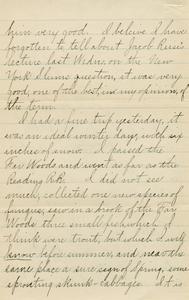 him very good. I believe I have
forgotten to tell about Jacob Riis's
lecture last Wedn. on the New
York Slums question, it was very
good, one of the best, in my opinion, of
the term.
I had a fine trip yesterday, it
was an ideal winter day, with six
inches of snow. I passed the
Far Woods and went as far as the
Reading R.R. I did not see
much, collected one new species of
fungus, saw in a brook of the Far
Woods three small fish which I
think were trout, but which I will
know before summer, and near the
same place a sure sign of spring, some
sprouting skunk-cabbages. It is